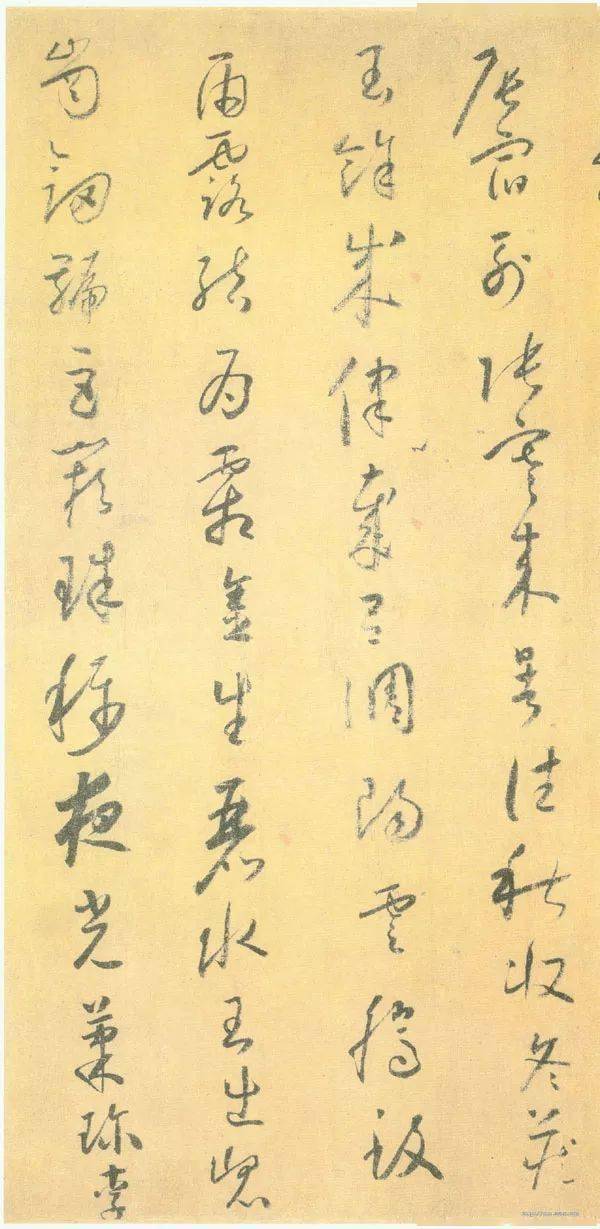 辰宿列張寒來暑往秋收冬藏
閏餘成律歲呂調陽雲騰致
雨露結為霜金生麗水玉出崑
崗劍號巨闕珠稱夜光菓珍李